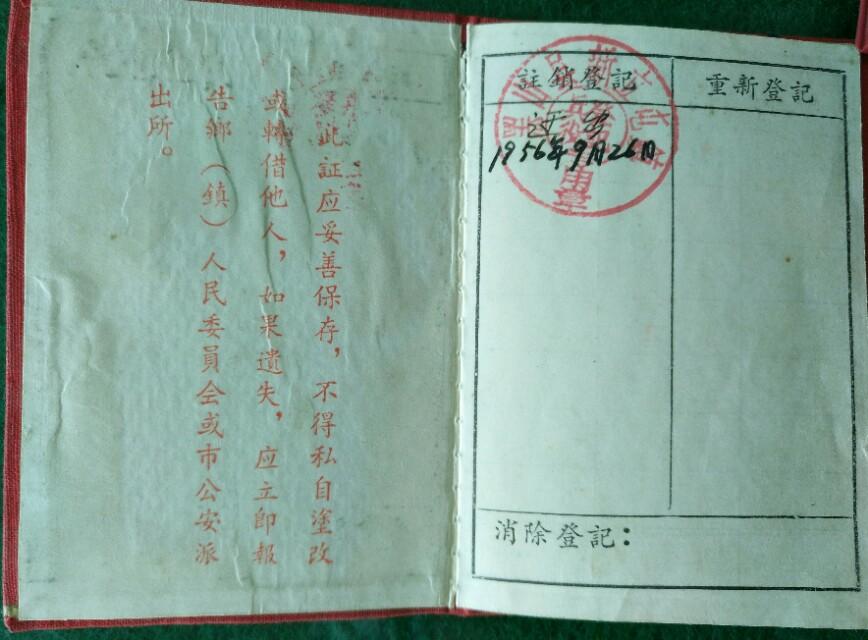 此証应妥善保存，不得私自塗改
或轉借他人，如果遺失，应立即報
告鄉（鎮）人民委員会或市公安派
出所。
註銷登記
重新登記
1956年9月26日
用章
消除登記：